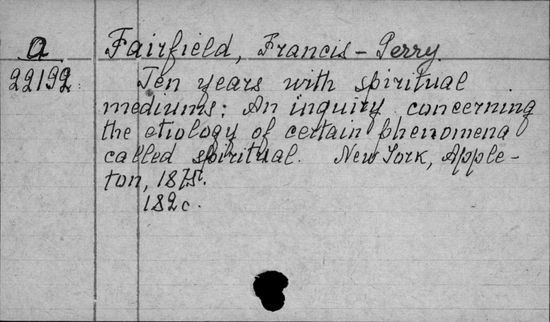 a
22192
Fairfield, Francis-Gerry.
Ten years with spiritual
mediums: An inquiry concerning
the etiology of certain phenomena
called spiritual. New York, Apple-
ton, 1875.
182 c.